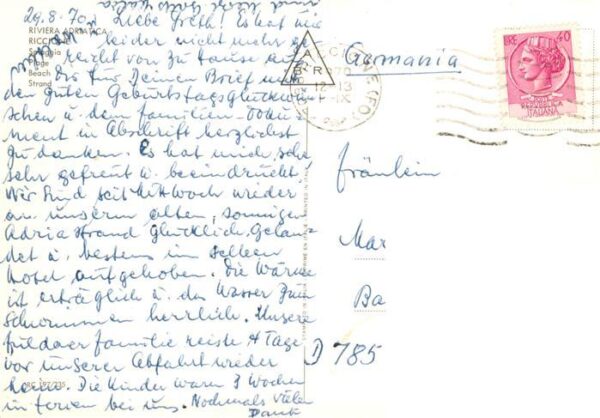 29.8.70. Liebe Greth! Es hat mir
RIVIERA ADRIATICA
leider nicht mehr ge
RICCIONE
reicht von zu Hause aus
Spiaggia
Plage
Beach
Strand
Dir für Deinen Brief mit
den guten Geburtstagsglückwün
schen u. dem Familien-Doku
ment in Abschrift herzlichst
zu danken. Es hat mich sehr
sehr gefreut u. beeindruckt.
Wir sind seit Mittwoch wieder
an unserm alten, sonnigen
Adriastrand glücklich gelan
det u. bestens im selben
Hotel aufgehoben. Die Wärme
ist erträglich u. das Wasser zum
Schwimmen herrlich. Unsere
Fuldaer Familie reiste 4 Tage
vor unserer Abfahrt wieder
heim. Die Kinder waren 3 Wochen
RC 197/235
in Ferien bei uns. Nochmals vielen
Dank
RICCIONE (FO)
12-13
IX
Germania
LIRE 40
REPUBBLICA
ITALIANA
Fräulein
Mar
Ba
D 785
PRINTED IN ITALY